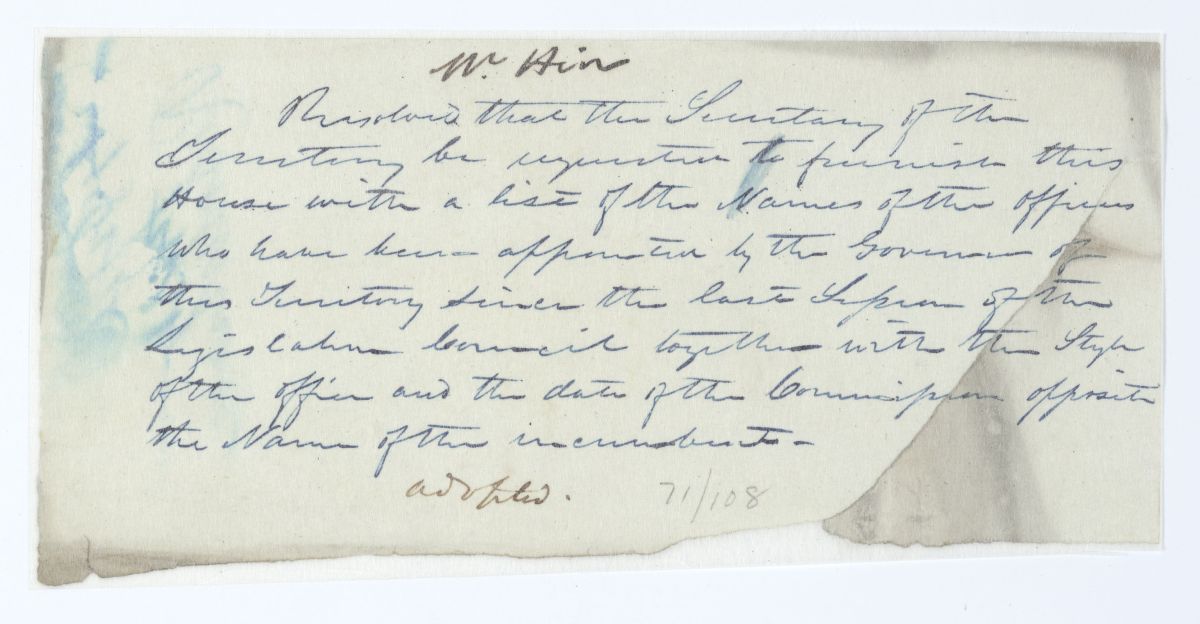 Mr Hir
Resolved that the Secretary of the
Territory be requested to furnish this
House with a list of the Names of the officers
who have been appointed by the Governor of
this Territory since the last Session of the
Legislative Council together with the Style
of the office and the date of the Commission opposite
the Name of the incumbent—
adopted.
71/108